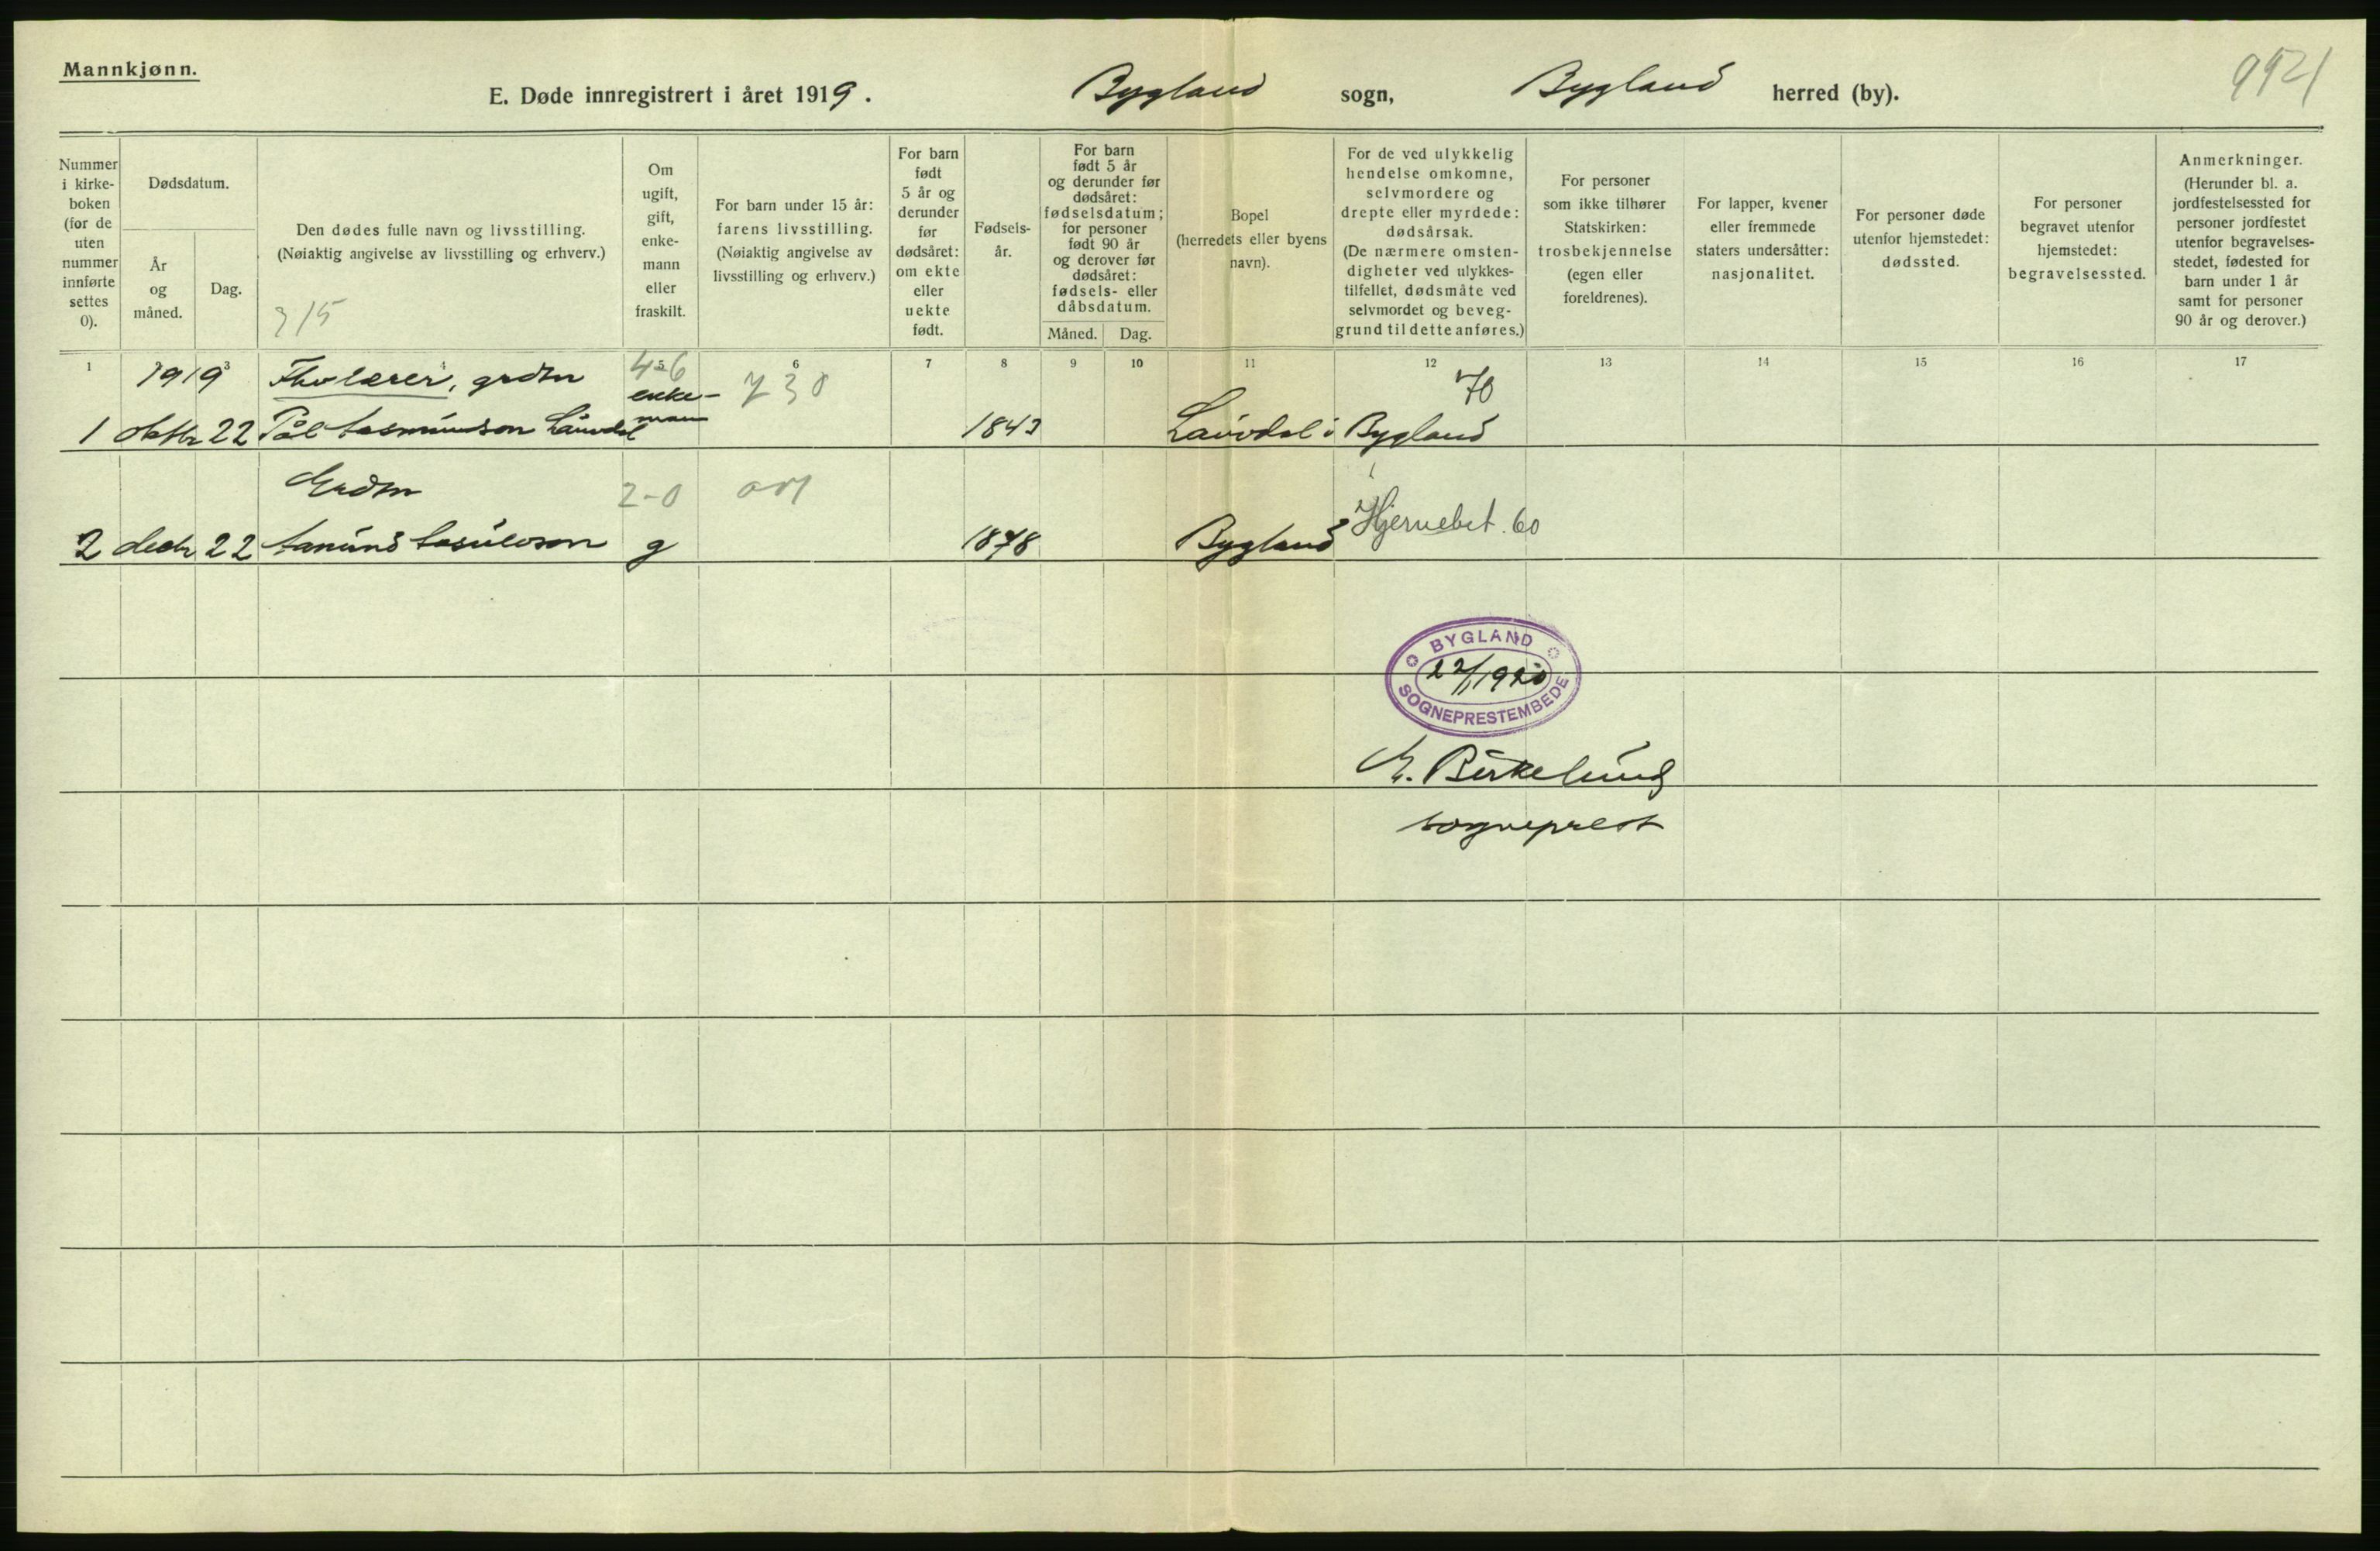 Mannkjønn.
E. Døde innregistrert i året 1919. Bygland sogn, Bygland herred (by).
9921
Nummer i kirke-boken (for de uten nummer innførte settes 0).
Dødsdatum.
År og måned.
Dag.
Den dødes fulle navn og livsstilling.
(Nøiaktig angivelse av livsstilling og erhverv.)
Om ugift, gift, enke-mann eller fraskilt.
For barn under 15 år: farens livsstilling.
(Nøiaktig angivelse av livsstilling og erhverv.)
For barn født 5 år og derunder før dødsåret: om ekte eller uekte født.
Fødsels-år.
For barn født 5 år og derunder før dødsåret: fødselsdatum; for personer født 90 år og derover før dødsåret: fødsels- eller dåbsdatum.
Måned.
Dag.
Bopel
(herredets eller byens navn).
For de ved ulykkelig hendelse omkomne, selvmordere og drepte eller myrdede: dødsårsak.
(De nærmere omsten-digheter ved ulykkes-tilfellet, dødsmåte ved selvmordet og beveg-grund til dette anføres.)
For personer som ikke tilhører Statskirken: trosbekjennelse (egen eller foreldrenes).
For lapper, kvener eller fremmede staters undersåtter: nasjonalitet.
For personer døde utenfor hjemstedet: dødssted.
For personer begravet utenfor hjemstedet: begravelsessted.
Anmerkninger.
(Herunder bl. a. jordfestelsessted for personer jordfestet utenfor begravelses-stedet, fødested for barn under 1 år samt for personer 90 år og derover.)
1 3 5 6 7 8 9 10 11 12 13 14 15 16 17
1919 lærer, grdm 4-6 enke-mann 730 70
1 oktbr 22 Pål Lauvdal 1843 Lauvdal i Bygland
Grdm 2-0
2 decbr 22 1878 g Bygland Hjernebet. 60
BYGLAND
22/1 1920
SOGNEPRESTEMBEDE
Birkelund
sogneprest